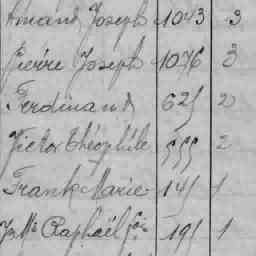 Amand Joseph 1043 3
Pierre Joseph 1076 3
Ferdinand 625 2
Victor Théophile 555 2
Frank Marie 145 1
Jn Mie Raphaël 195 1